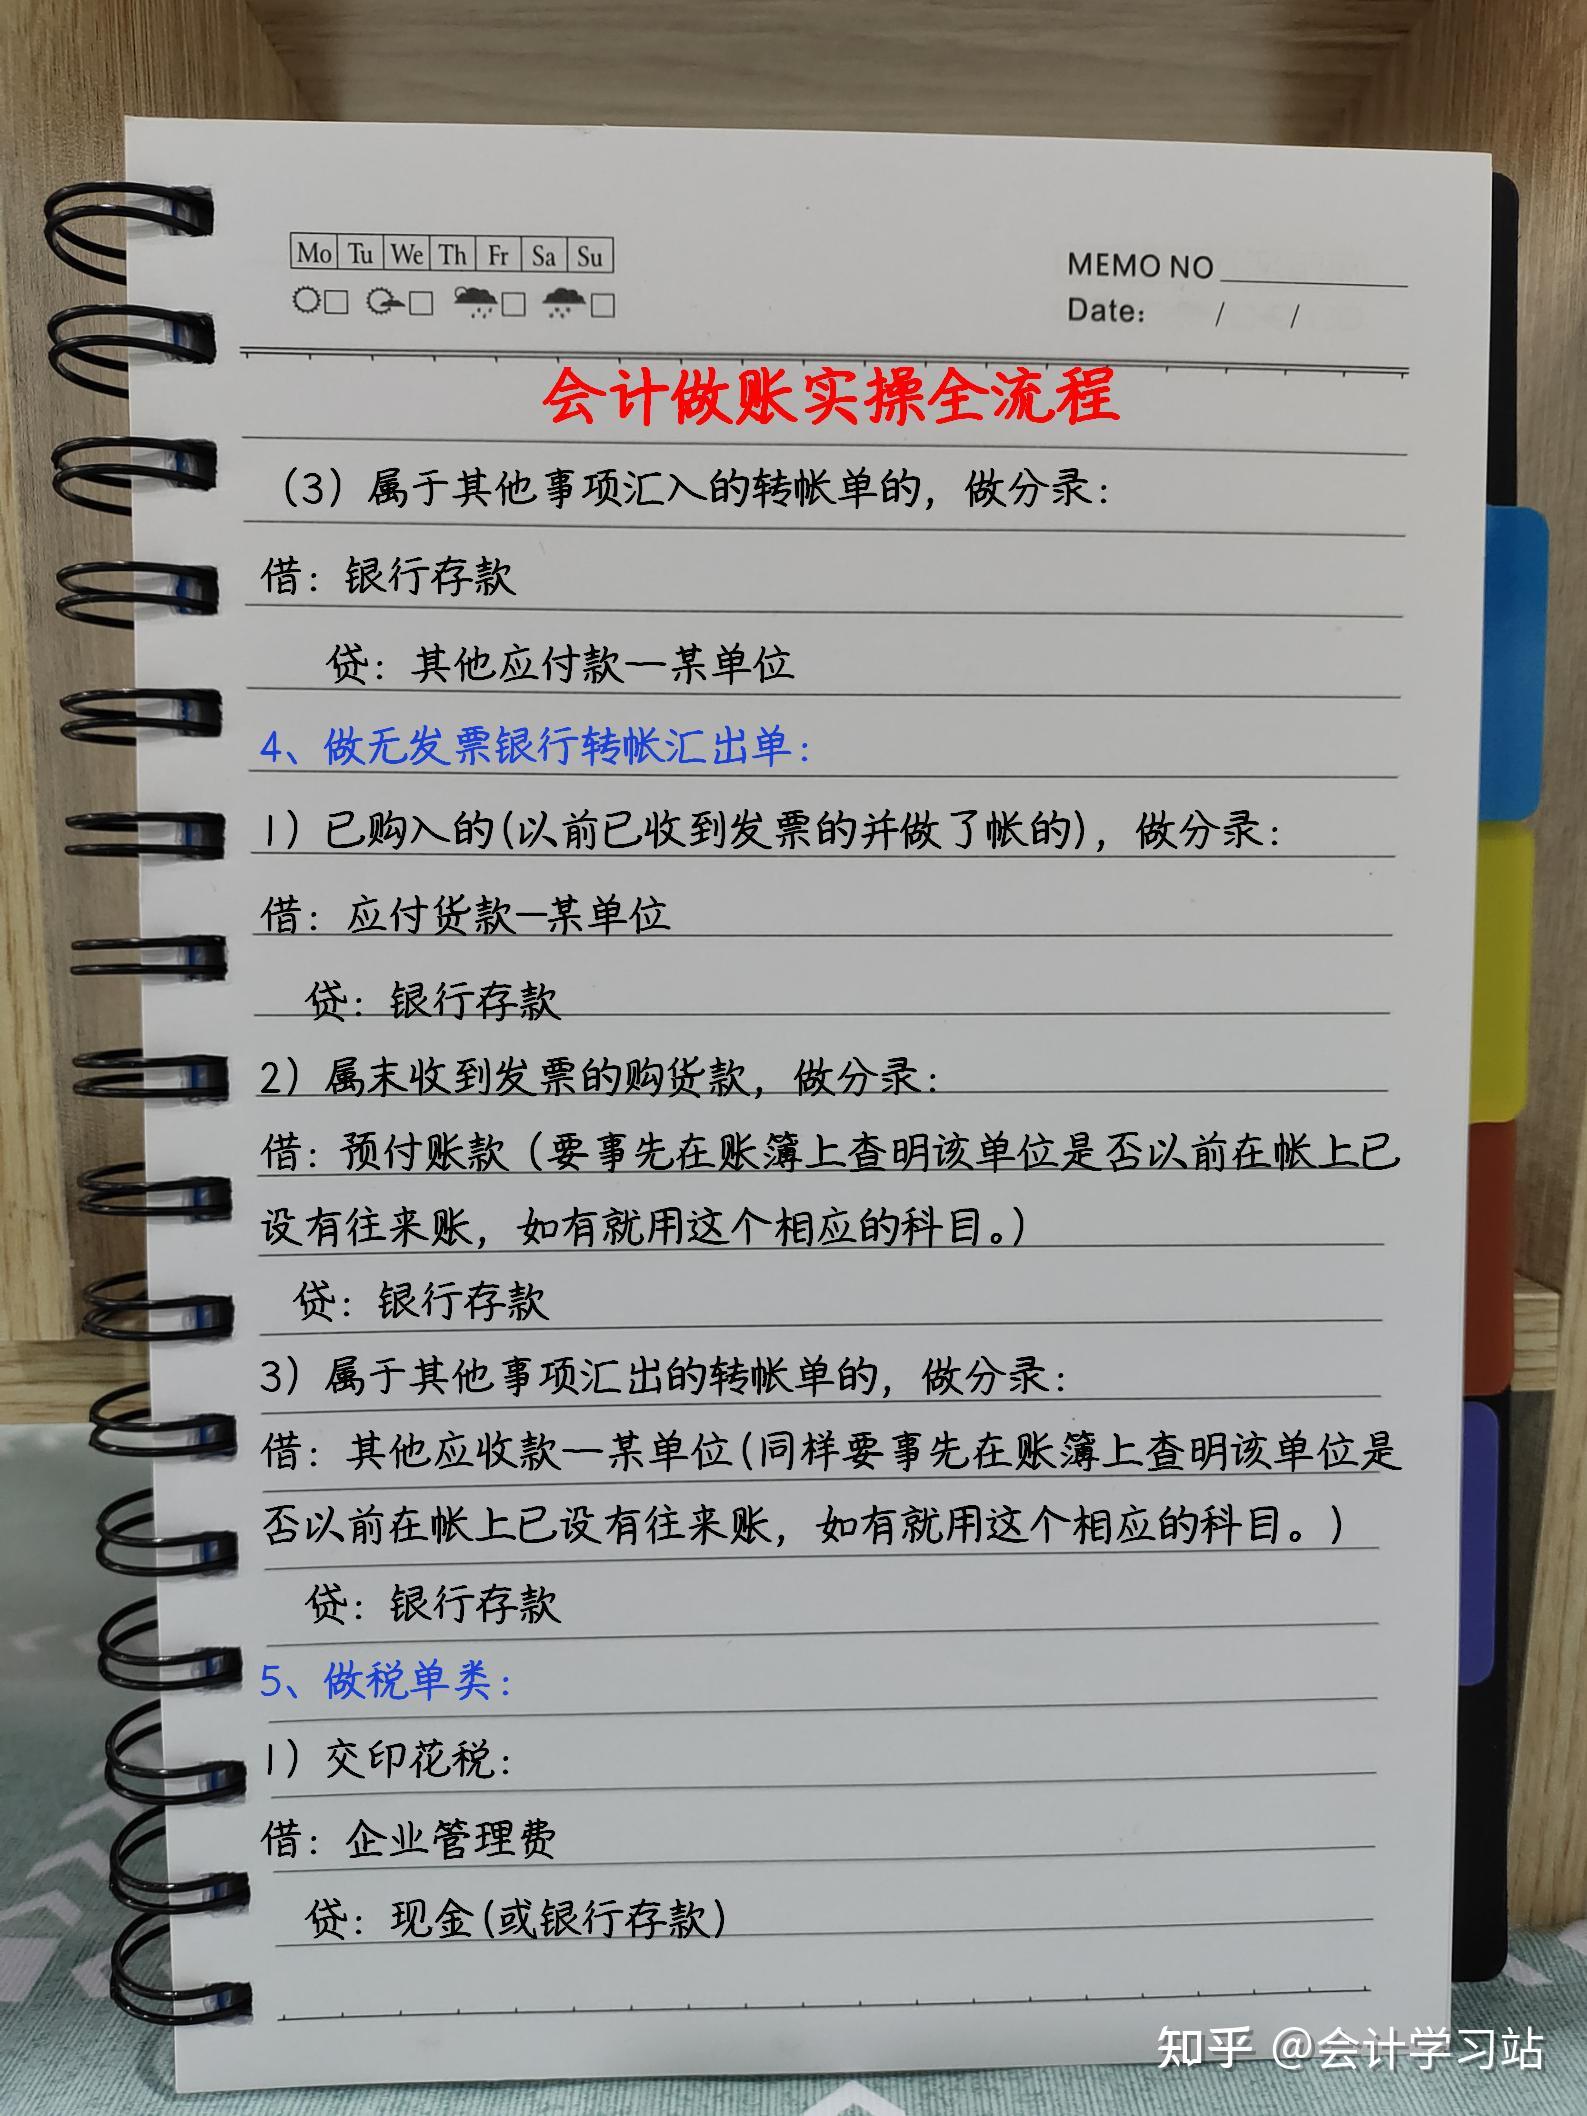 Mo Tu We Th Fr Sa Su
MEMO NO
Date: / /
会计做账实操全流程
（3）属于其他事项汇入的转帐单的，做分录：
借：银行存款
贷：其他应付款—某单位
4、做无发票银行转帐汇出单：
1）已购入的(以前已收到发票的并做了帐的)，做分录：
借：应付货款—某单位
贷：银行存款
2）属末收到发票的购货款，做分录：
借：预付账款（要事先在账簿上查明该单位是否以前在帐上已
设有往来账，如有就用这个相应的科目。）
贷：银行存款
3）属于其他事项汇出的转帐单的，做分录：
借：其他应收款—某单位(同样要事先在账簿上查明该单位是
否以前在帐上已设有往来账，如有就用这个相应的科目。）
贷：银行存款
5、做税单类：
1）交印花税：
借：企业管理费
贷：现金(或银行存款)
知乎 @会计学习站